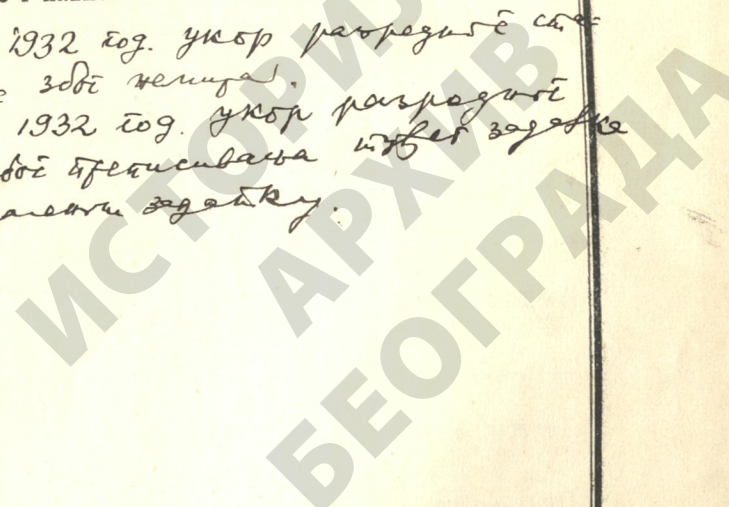 1932 год. укор разредног ста-
због немира.
1932 год. укор разредног
због преписивања туђег задатка
задатку.
ИСТОРИЈ
АРХИВ
БЕОГРАДА